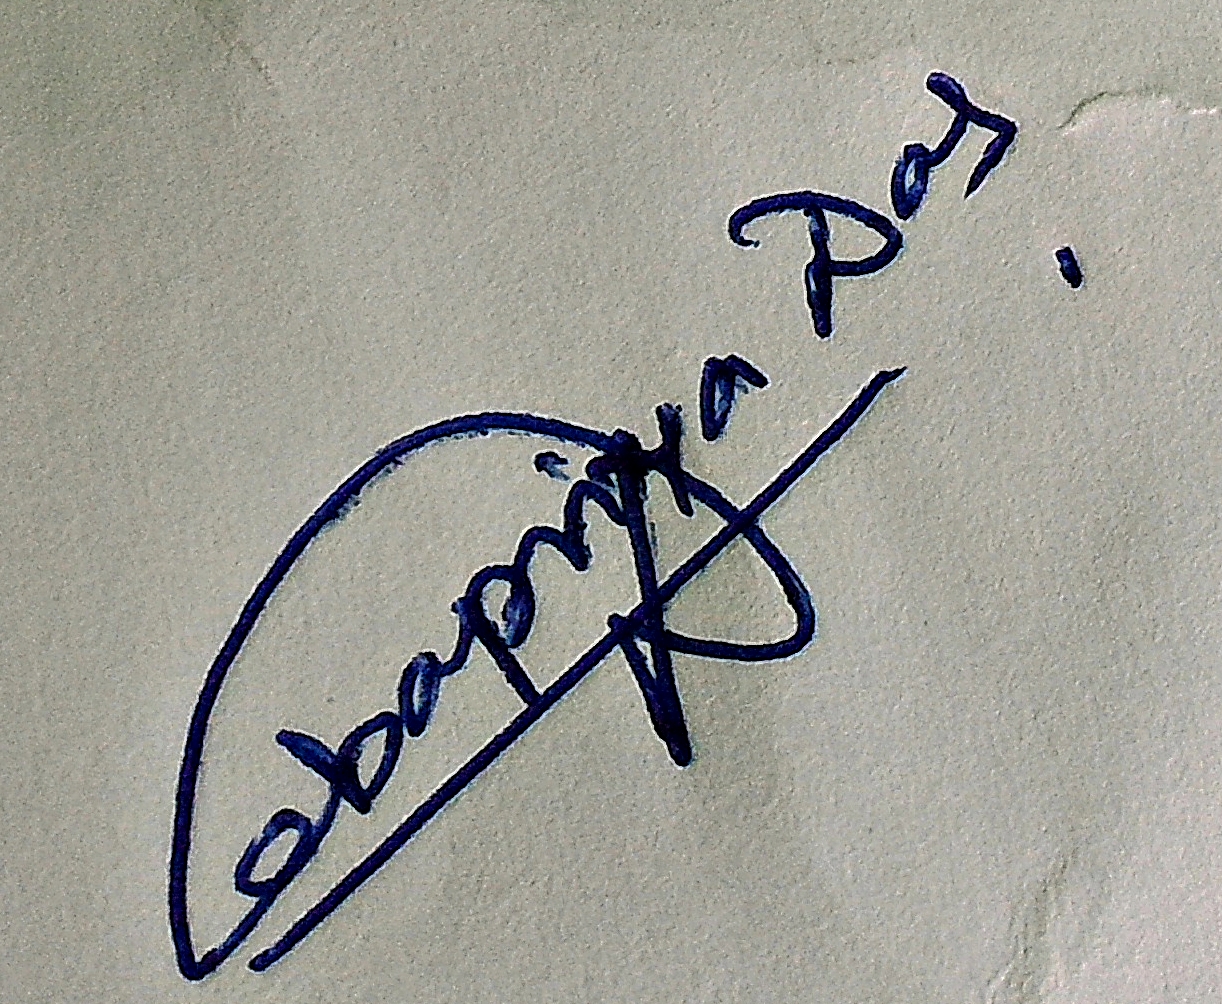 Debapriya Das.